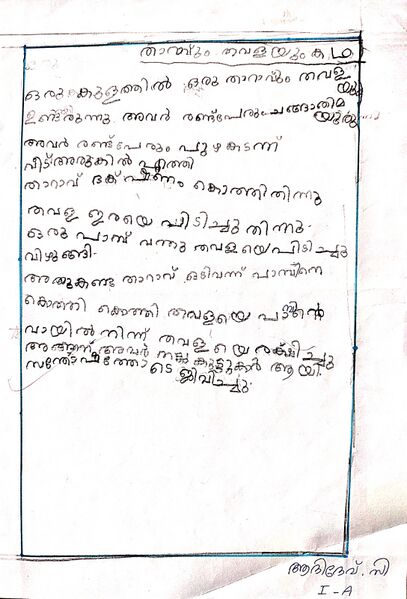 താറാവും തവളയും കഥ
ഒരു കുളത്തിൽ ഒരു താറാവും തവള
യും
ഉണ്ടായിരുന്നു. അവർ രണ്ട്പേരും ചങ്ങാതിമാ
രായിരുന്നു
അവർ രണ്ട്പേരും പുഴകടന്ന്
വീട്അരുകിൽ എത്തി
താറാവ് ഭക്ഷണം കൊത്തിതിന്നു
തവള ഇരയെ പിടിച്ചു തിന്നു.
ഒരു പാമ്പ് വന്നു തവളയെപിടിച്ചു
വിഴുങ്ങി.
അതുകണ്ട താറാവ് ഓടിവന്ന് പാമ്പിനെ
കൊത്തി കൊത്തി തവളയെ പാമ്പിന്റെ
വായിൽ നിന്ന് തവളയെ രക്ഷിച്ചു
അങ്ങനെ അവർ നല്ല കൂട്ടുകാർ ആയി.
സന്തോഷത്തോടെ ജീവിച്ചു.
ആദിദേവ്. സി
I - A